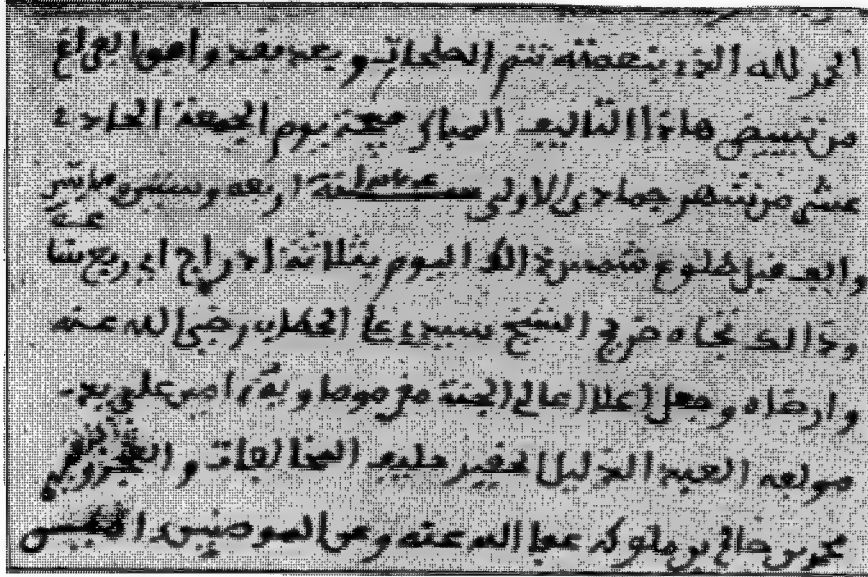 الحمد لله الذي بنعمته تتم الصلحات وبعد فقد وافق الفراغ
من تبييض هاذا التاليف المبارك صبيحة يوم الجمعة الحادي
عشر من شهر جمادى الاولى سنة اربعة وستين مايتين
والف قبل طلوع شمس ذالك اليوم بثلاثة ادراج
وذالك تجاه ضريح الشيخ سيدي رضي الله عنه
وارضاه وجعل اعلا اعالي الجنة ءامين على يد
مولفه العبد الذليل الحقير حليف المخالفات والعجز
محمد بن صالح بن ملوكه عفا الله عنه وعن المومنين